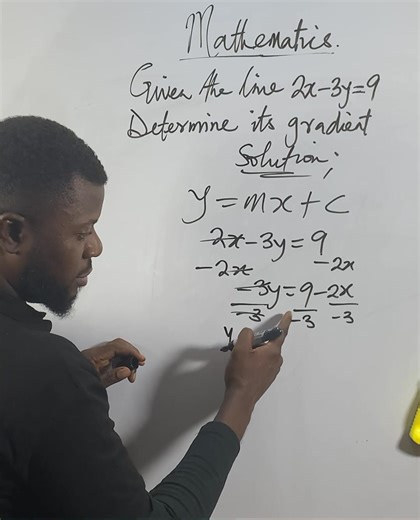 Mathematics.
Given the line 2x-3y=9
Determine its gradient
Solution;
y=mx+c
2x-3y=9
-2x -2x
-3y=9-2x
-3 -3 -3
y